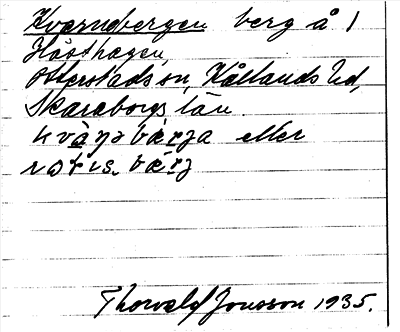 Kvarnebergen berg å 1
Hästhagen,
Otterstads sn, Kållands hd,
Skaraborgs län.
kvänəbärja eller
bärj
Thorvald Jonsson 1935.